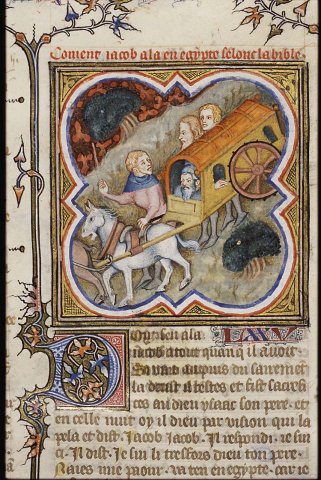 Coment iacob ala en egypte selonc la bible
sen ala
iacob a tout quanquil auoit
au puis du sairement
et fist sacrefi
ces au dieu ysaac son pere. et
en celle nuit oy il dieu par vision qui la
pela et dist. Jacob Jacob. Il respondi ie sui
ci. Il dist. Je sui li tresfors dieu ton pere.
Naies mie paour. va ten en egypte. car ie